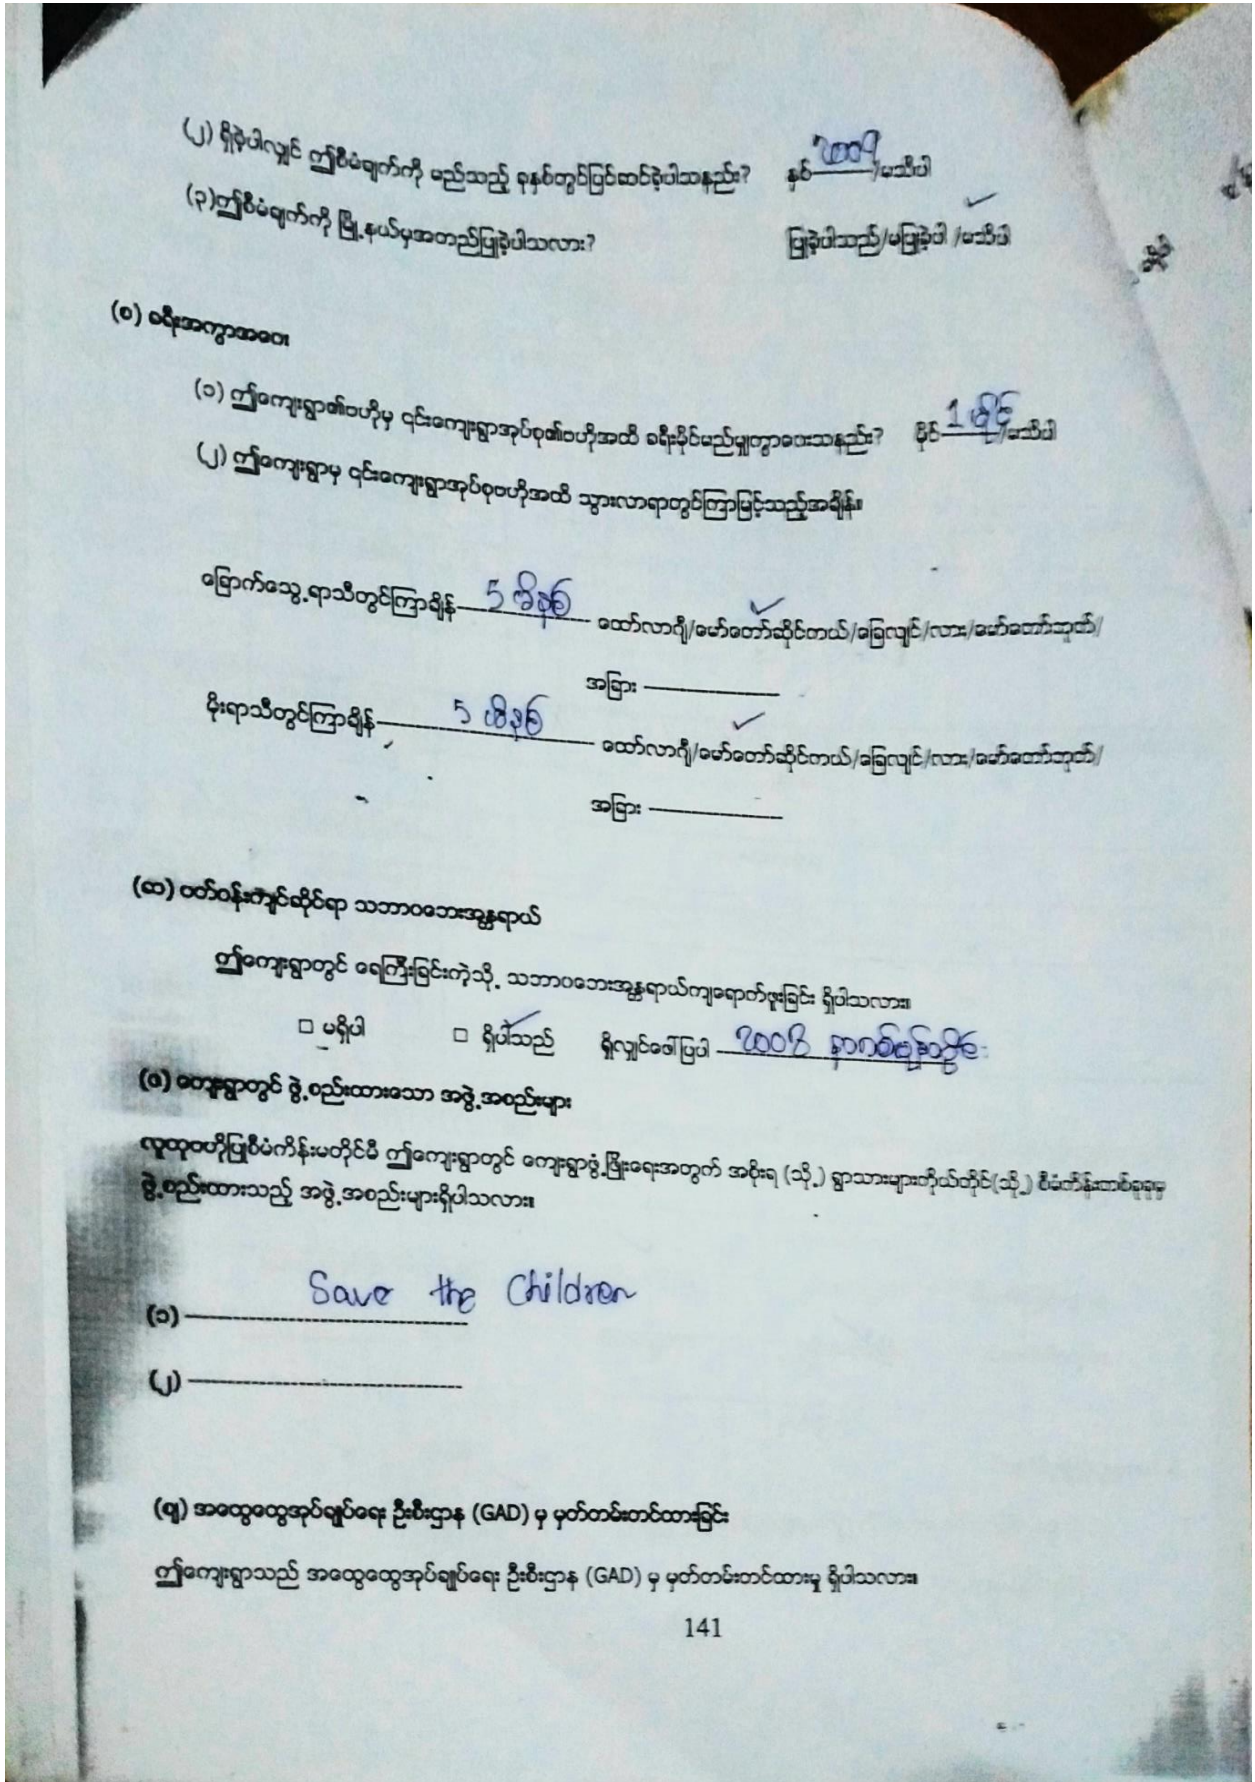 (၂) ရှိခဲ့ပါလျှင် ဤစီမံချက်ကို မည်သည့် ခုနှစ်တွင်ပြင်ဆင်ခဲ့ပါသနည်း? နှစ် 2009 /မသိပါ
(၃)ဤစီမံချက်ကို မြို့နယ်မှအတည်ပြုခဲ့ပါသလား? ပြုခဲ့ပါသည်/မပြုခဲ့ပါ /မသိပါ ✓
(စ) ခရီးအကွာအဝေး
(၁) ဤကျေးရွာ၏ဗဟိုမှ ၎င်းကျေးရွာအုပ်စု၏ဗဟိုအထိ ခရီးမိုင်မည်မျှကွာဝေးသနည်း? မိုင် 1 မိုင် /မသိပါ
(၂) ဤကျေးရွာမှ ၎င်းကျေးရွာအုပ်စုဗဟိုအထိ သွားလာရာတွင်ကြာမြင့်သည့်အချိန်။
ခြောက်သွေ့ရာသီတွင်ကြာချိန် 5 မိနစ် ထော်လာဂျီ/မော်တော်ဆိုင်ကယ် ✓/ခြေလျင်/လား/မော်တော်ဘုတ်/
အခြား
မိုးရာသီတွင်ကြာချိန် 5 မိနစ် ထော်လာဂျီ/မော်တော်ဆိုင်ကယ် ✓/ခြေလျင်/လား/မော်တော်ဘုတ်/
အခြား
(ဆ) ဝတ်ဝန်းကျင်ဆိုင်ရာ သဘာဝဘေးအန္တရာယ်
ဤကျေးရွာတွင် ရေကြီးခြင်းကဲ့သို့ သဘာဝဘေးအန္တရာယ်ကျရောက်ဖူးခြင်း ရှိပါသလား။
□ မရှိပါ □ ရှိပါသည် ✓ ရှိလျှင်ဖေါ်ပြပါ 2008 နာဂစ်မုန်တိုင်း
(ဇ) ကျေးရွာတွင် ဖွဲ့စည်းထားသော အဖွဲ့အစည်းများ
လူထုဗဟိုပြုစီမံကိန်းမတိုင်မီ ဤကျေးရွာတွင် ကျေးရွာဖွံ့ဖြိုးရေးအတွက် အစိုးရ (သို့) ရွာသားများကိုယ်တိုင်(သို့) စီမံကိန်းတစ်ခုခုမှ
ဖွဲ့စည်းထားသည့် အဖွဲ့အစည်းများရှိပါသလား။
(၁) Save the Children
(၂)
(ဈ) အထွေထွေအုပ်ချုပ်ရေး ဦးစီးဌာန (GAD) မှ မှတ်တမ်းတင်ထားခြင်း
ဤကျေးရွာသည် အထွေထွေအုပ်ချုပ်ရေး ဦးစီးဌာန (GAD) မှ မှတ်တမ်းတင်ထားမှု ရှိပါသလား။
141